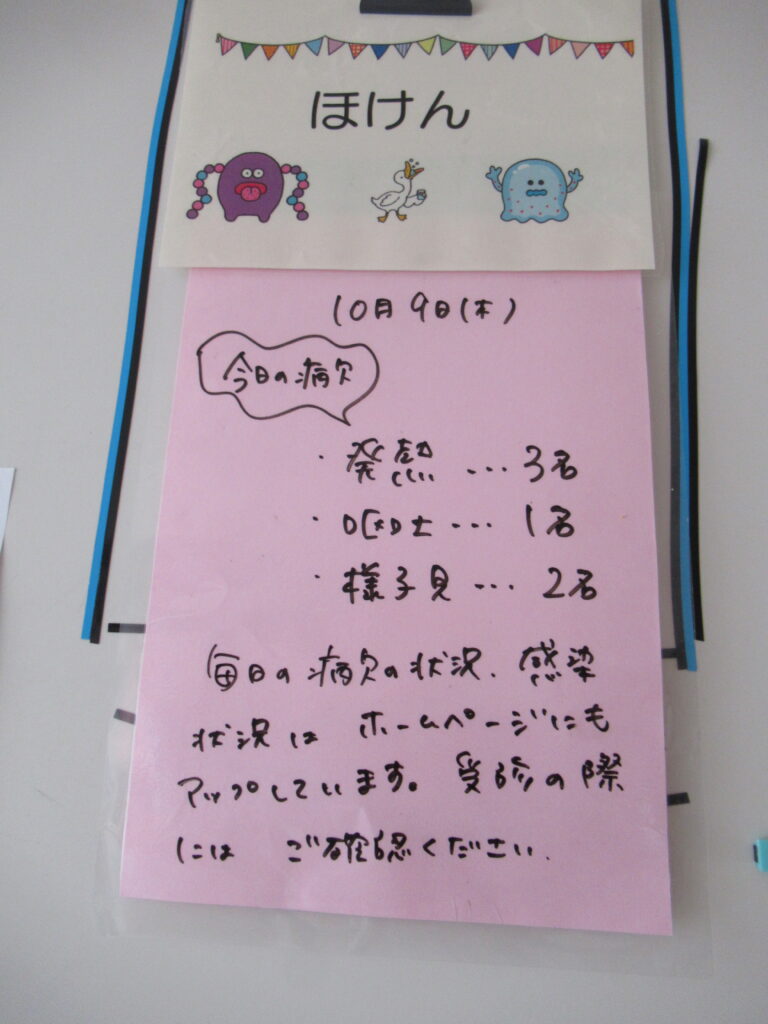 ほけん
10月9日(木)
今日の病欠
・発熱 … 3名
・嘔吐 … 1名
・様子見 … 2名
毎日の病欠の状況、感染
状況は ホームページにも
アップしています。受診の際
には ご確認ください。